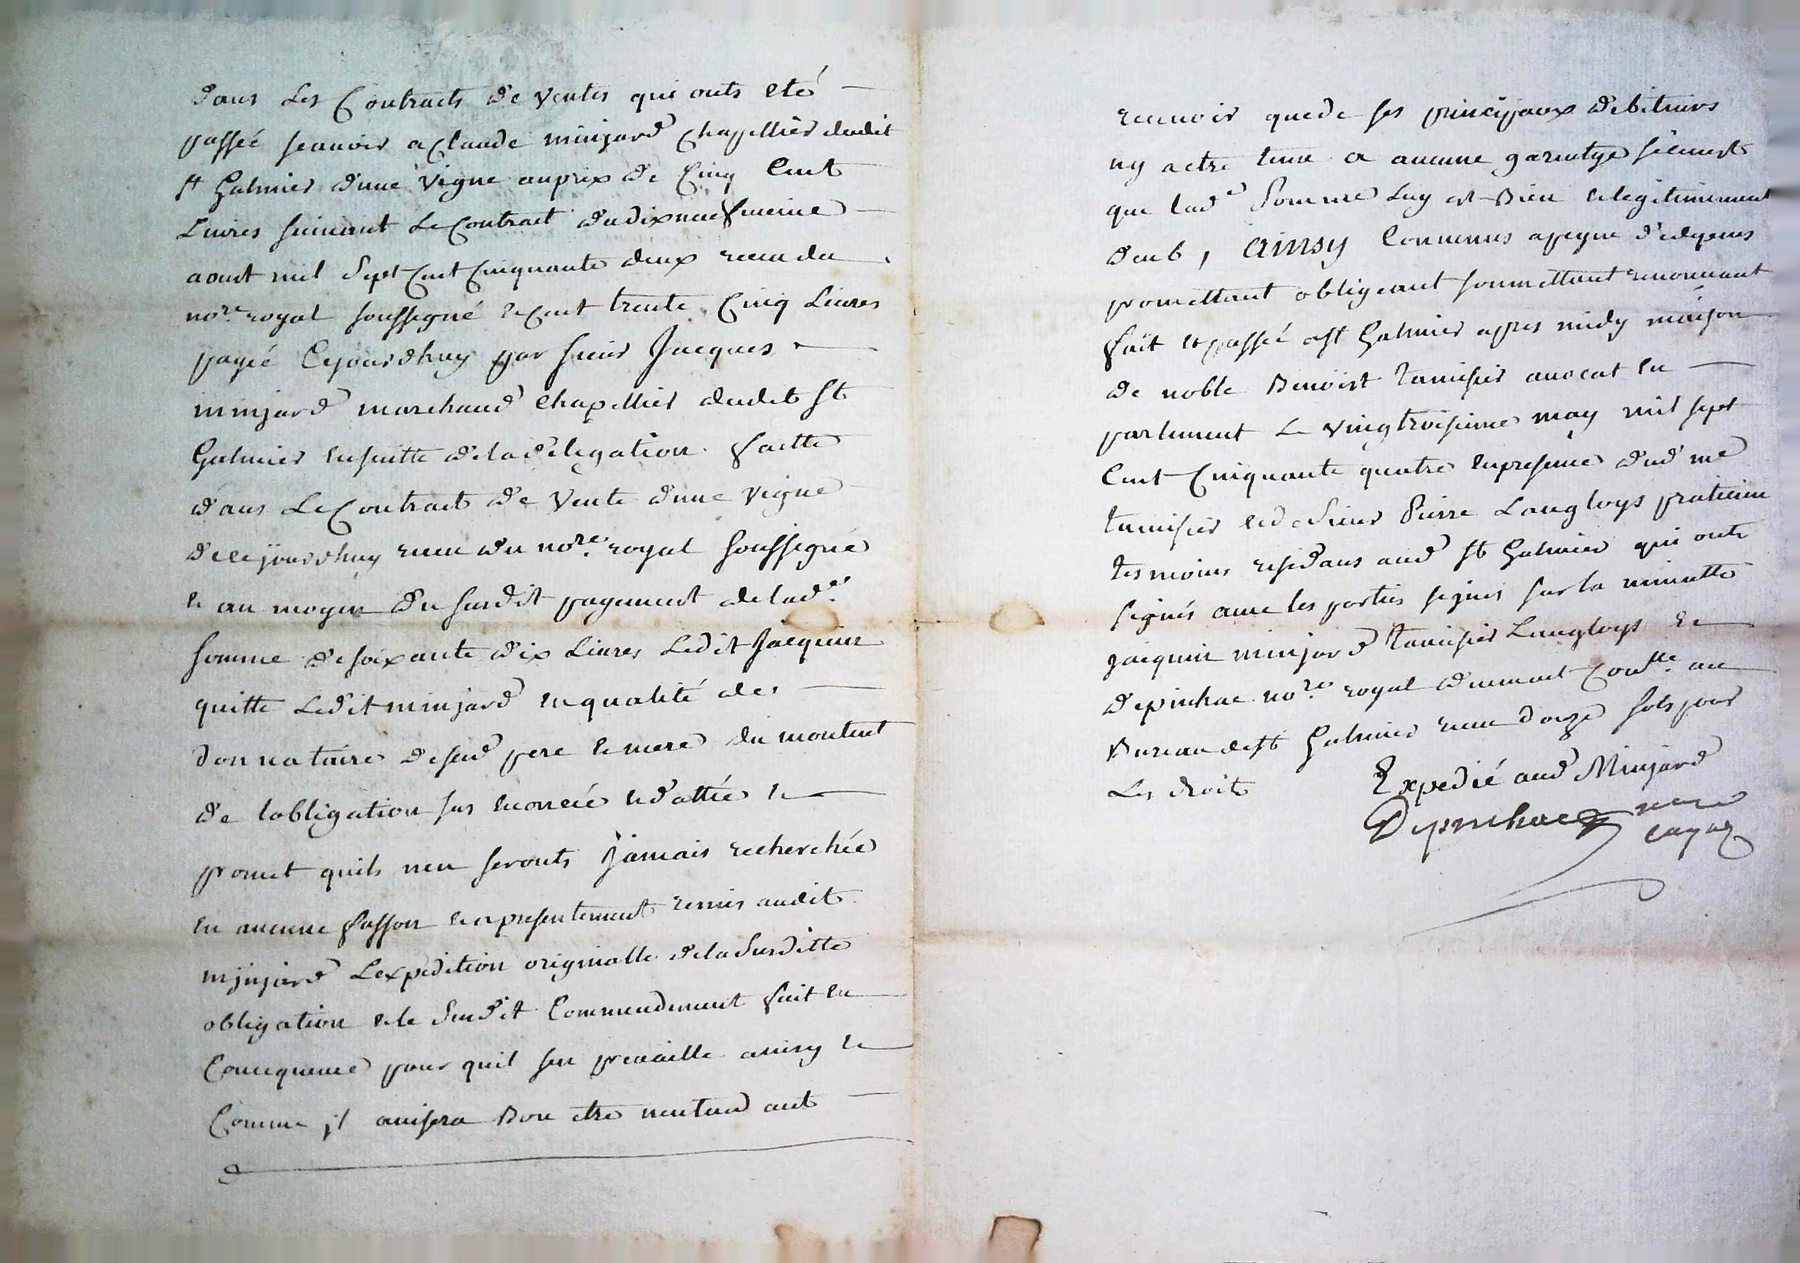 dans les Contracts de ventes qui onts eté
passée scauoir a Claude minjard chapellier dudit
st Galmier d'une vigne au prix de Cinq Cent
Liures suiuant le Contract du dixneufuieme
aoust mil sept Cent Cinquante deux receu du
nore. royal soussigné & Cent trente Cinq Liures
payée Cejourdhuy par sieur Jacques
minjard marchand chapellier dudit st
Galmier ensuitte de la delegation faitte
dans le Contract de vente d'une vigne
de cejourdhuy receu du nore. royal soussigné
& au moyen du susdit payement de lade.
somme de soixante dix Liures Ledit Jacquier
quitte Ledit minjard en qualité de
donnataire de sesd pere & mere du montent
de lobligation sus enoncée & dattée &
promet quils nen seronts Jamais recherchée
en aucune fasson & a presentement remis audit
minjard Lexpedition originalle de la susditte
obligation & le susdit Commendement fait en
Concequence pour quil sen preuaille ainsy &
Comme il auisera Bon etre nentend ant
receuoir que de ses principaux debiteurs
ny actre tenu a aucune garentye sèlement
que lade Somme Luy est Bien & legitimement
deub, ainsy Conuenus a peyne d'edepens
promettant obligeant soumettant renoncant
fait & passé a st Galmier apres midy maison
de noble Benoist tamisier auocat en
parlement le vingtroisieme may mil sept
Cent Cinquante quatre en presence dud me
tamisier & de sieur Pierre Langloys praticien
tesmoins residans aud st Galmier qui onts
signés auec les parties signés sur la minutte
Jacquier minjard tamisier Langloys &
depinhac nore royal duement Conlle. au
Bureau de st Galmier receu douze sols pour
Les droits
Expedié aud Minjard
Depinhac nore
royal